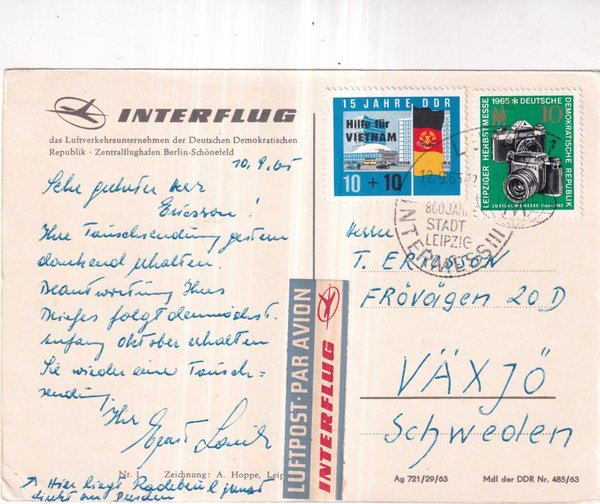 INTERFLUG
das Luftverkehrsunternehmen der Deutschen Demokratischen
Republik · Zentralflughafen Berlin-Schönefeld
10.9.65
Sehr geehrter Herr
Ericsson!
Ihre Tauschsendung gestern
dankend erhalten.
Beantwortung Ihres
Briefes folgt demnächst.
Anfang Oktober erhalten
Sie wieder eine Tausch=
sendung.
Ihr Ernst
Nr. 1 Zeichnung: A. Hoppe,
Hier liegt Radebeul
direkt an Dresden
LUFTPOST · PAR AVION
INTERFLUG
15 JAHRE DDR
Hilfe für
VIETNAM
10 + 10
1965 DEUTSCHE
10
DEMOKRATISCHE REPUBLIK
LEIPZIGER HERBSTMESSE
JUBILÄUMSMESSE 1165-1965
12.9.65
800 JAHRE
STADT
LEIPZIG
INTERMESS III
Herrn
T. ERICSSON
FRÖVÄGEN 20 D
VÄXJÖ
Schweden
Ag 721/29/63
Mdl der DDR Nr. 485/63